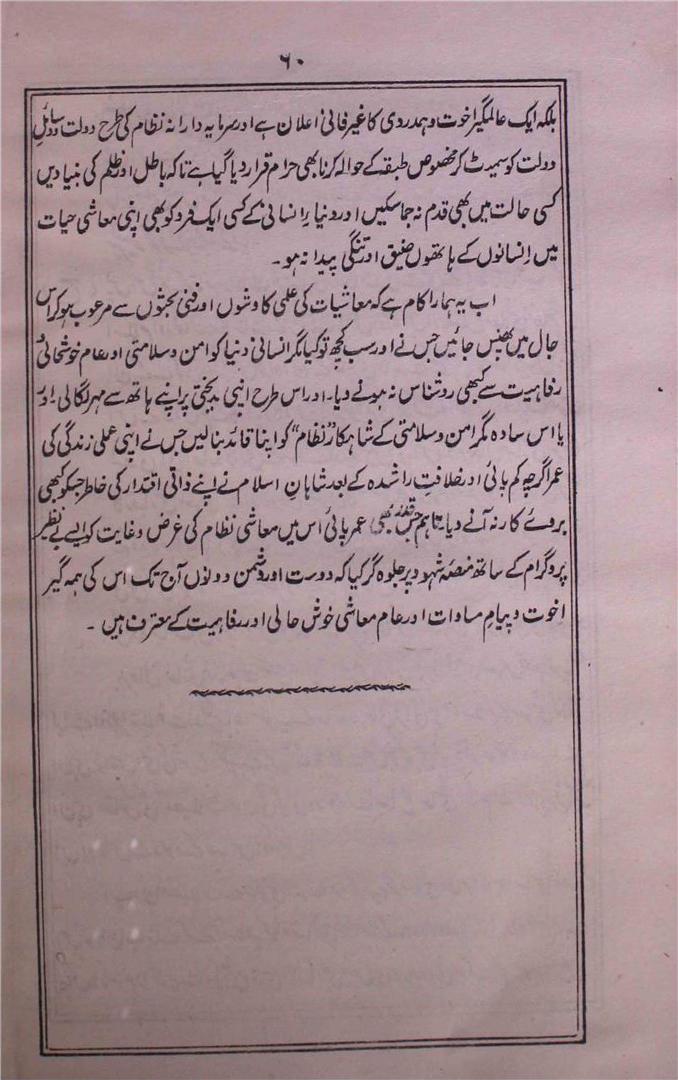 ۶۰
بلکہ ایک عالمگیر اخوت و ہمدردی کا غیر فانی اعلان ہے اور سرمایہ دارانہ نظام کی طرح دولت و وسائلِ
دولت کو سمیٹ کر مخصوص طبقہ کے حوالہ کرنا بھی حرام قرار دیا گیا ہے تاکہ باطل اور ظلم کی بنیادیں
کسی حالت میں بھی قدم نہ جما سکیں اور دنیاءِ انسانی کے کسی ایک فرد کو بھی اپنی معاشی حیات
میں انسانوں کے ہاتھوں ضیق اور تنگی پیدا نہ ہو۔
اب یہ ہمارا کام ہے کہ معاشیات کی علمی کاوشوں اور فنی بحثوں سے مرعوب ہو کر اس
جال میں پھنس جائیں جس نے اور سب کچھ تو کیا مگر انسانی دنیا کو امن و سلامتی اور عام خوشحالی و
رفاہیت سے کبھی روشناس نہ ہونے دیا۔ اور اس طرح اپنی بدبختی پر اپنے ہاتھ سے مہر لگالی اور
یا اس سادہ مگر امن و سلامتی کے شاہکار "نظام" کو اپنا قائد بنالیں جس نے اپنی عملی زندگی کی
عمر اگرچہ کم پائی اور خلافتِ راشدہ کے بعد شاہانِ اسلام نے اپنے ذاتی اقتدار کی خاطر جسکو کبھی
بروئے کار نہ آنے دیا۔ تاہم جس قدر بھی عمر پائی اس میں معاشی نظام کی غرض و غایت کو ایسے بے نظیر
پروگرام کے ساتھ منصۂ شہود پر جلوہ گر کیا کہ دوست اور دشمن دونوں آج تک اس کی ہمہ گیر
اخوت و پیامِ مساوات اور عام معاشی خوش حالی اور رفاہیت کے معترف ہیں۔